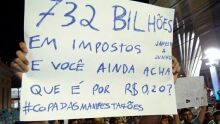 732 BILHÕES
EM IMPOSTOS JANEIRO A JUNHO
E VOCÊ AINDA ACHA
QUE É POR R$0,20?
#COPADASMANIFESTAÇÕES